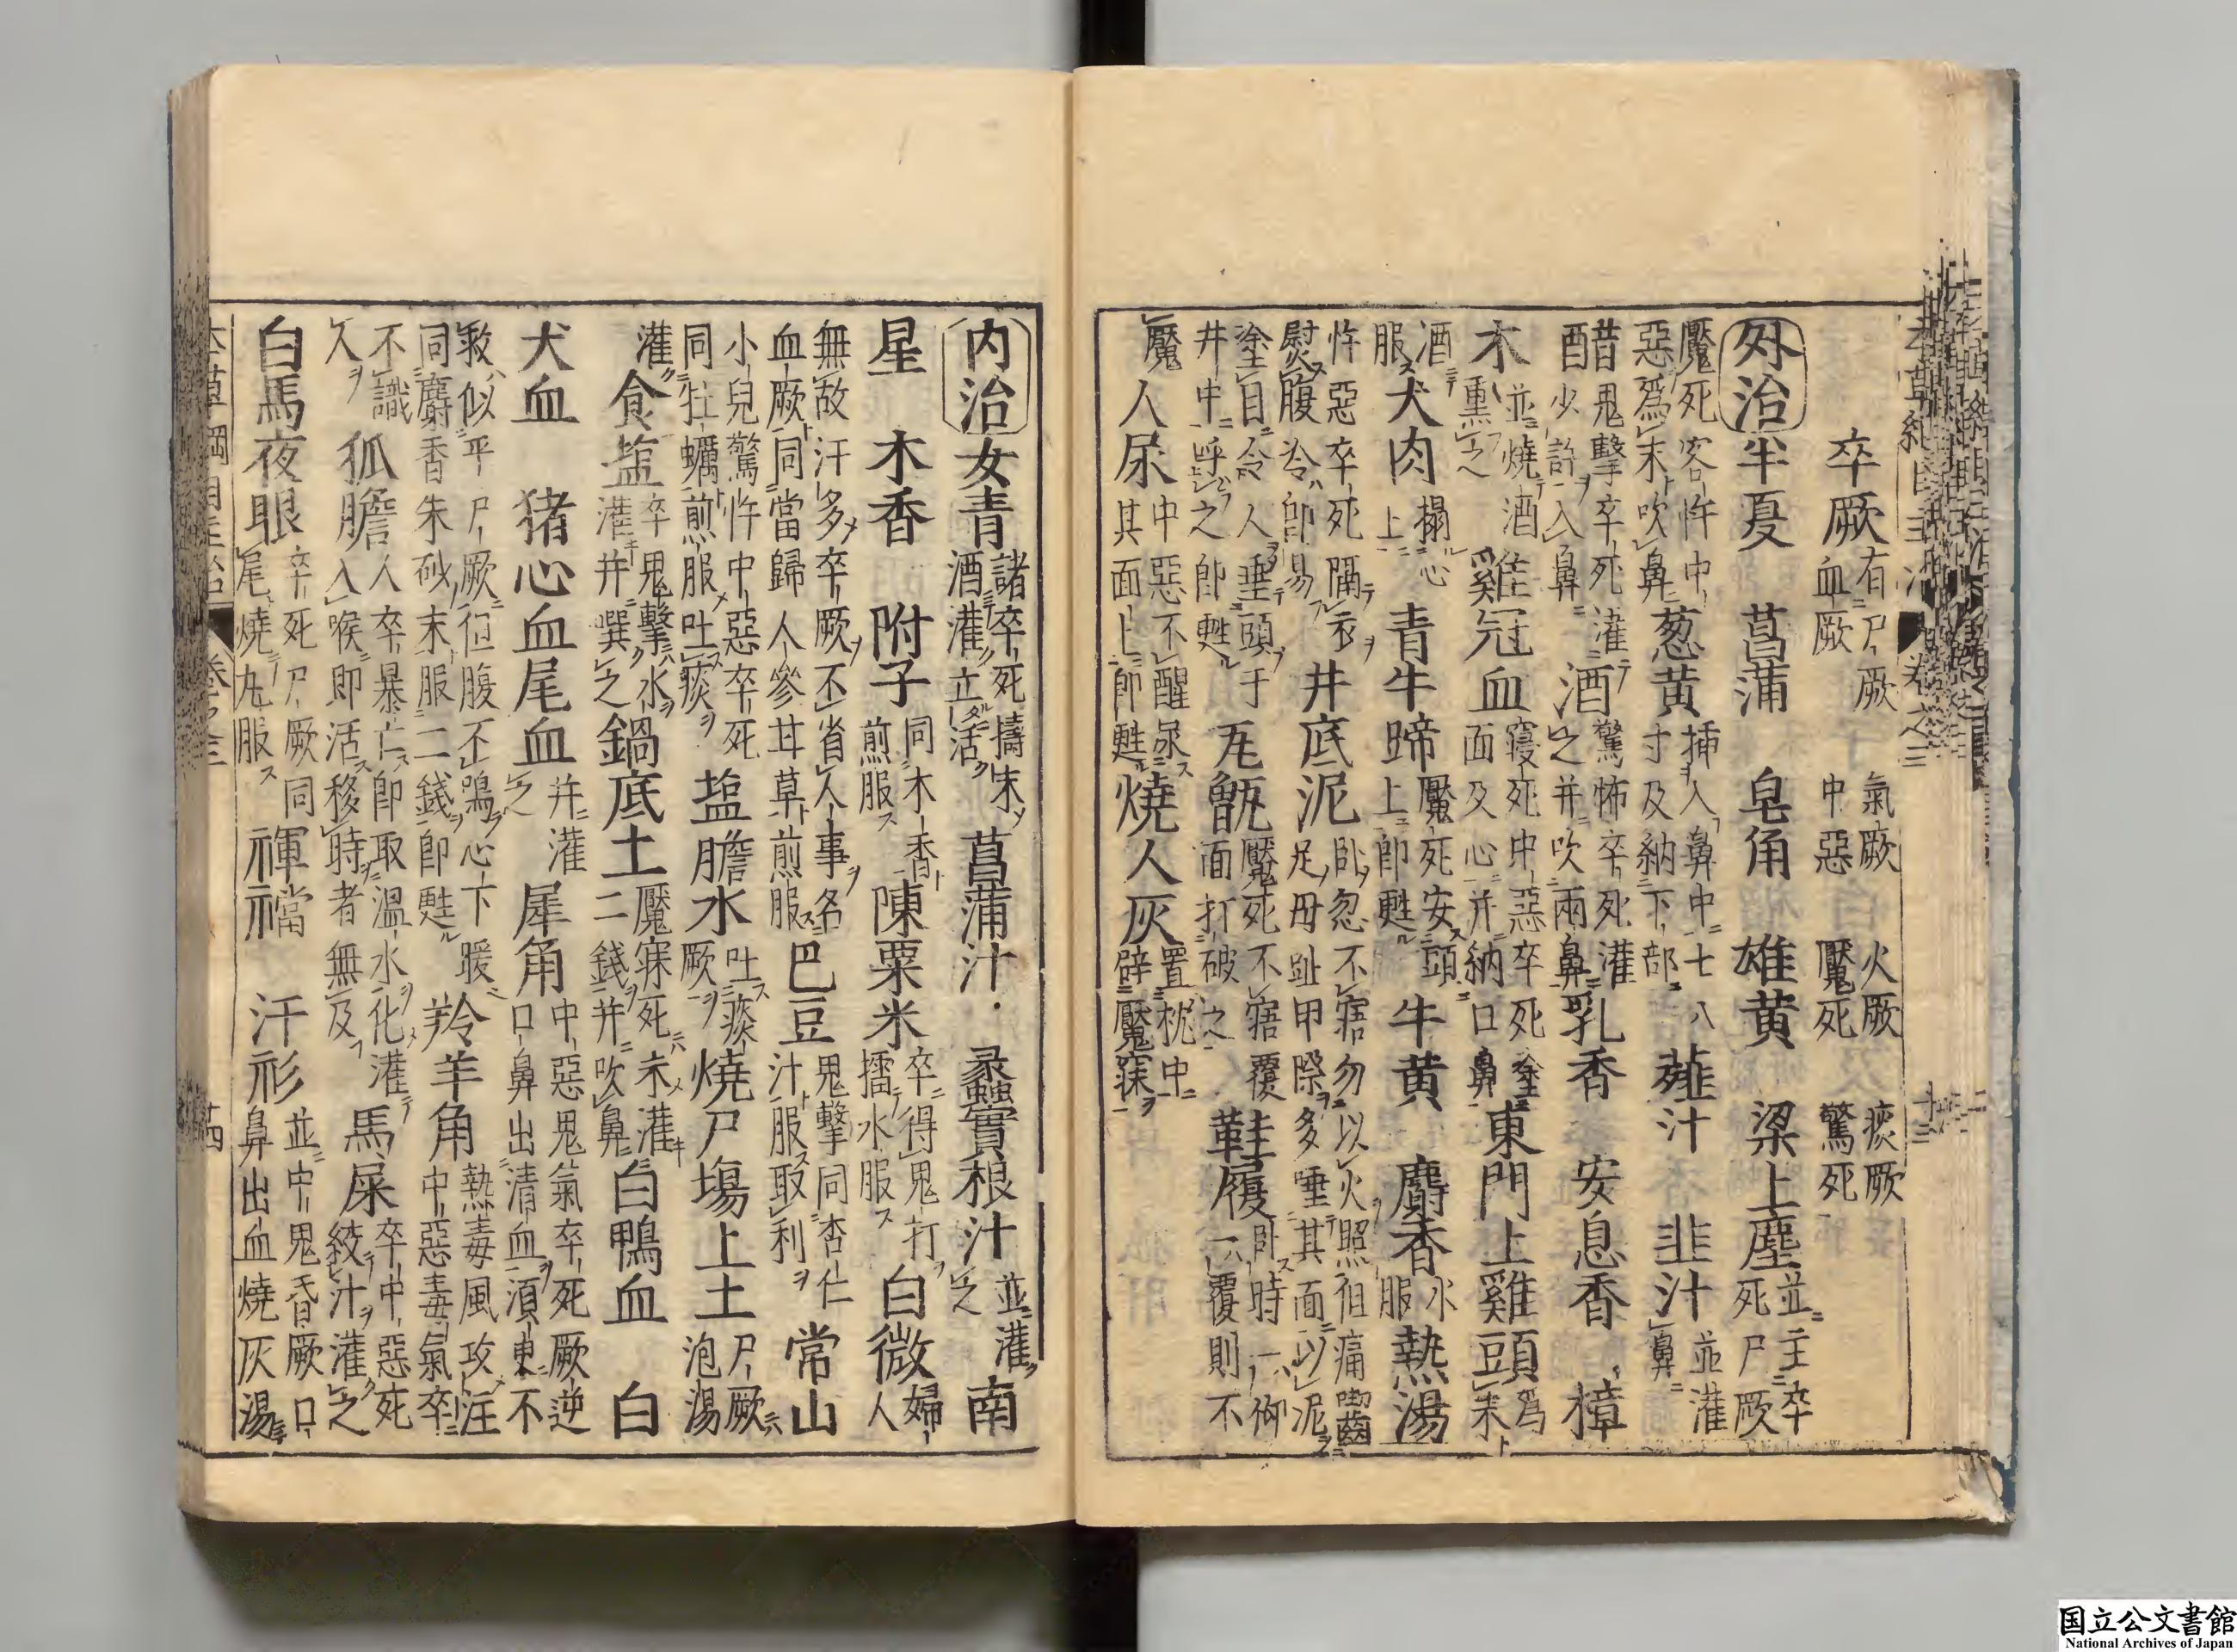 卒厥有尸厥氣厥火厥痰厥血厥中惡魘死驚死
外治半夏菖蒲皂角雄黄梁上塵並主卒死尸厥
魘死客忤中惡爲末吹鼻葱黄插入鼻中七八寸及納下部薤汁韭汁並灌鼻
醋鬼擊卒死灌少許入鼻酒驚怖卒死灌之并吹兩鼻乳香安息香樟
木並燒酒熏之雞冠血寢死中惡卒死塗面及心并納口鼻東門上雞頭爲末
酒服犬肉搨心上青牛蹄魘死安頭上即甦牛黄麝香水服熱湯
忤惡卒死隔衣熨腹冷即易井底泥臥忽不寤勿以火照但痛齧足拇趾甲際多唾其面以泥
塗目令人垂頭于井中呼之即甦瓦甑魘死不寤覆面打破之鞋履臥時一仰一覆則不
魘人尿中惡不醒尿其面上即甦燒人灰置枕中辟魘寐
内治女青諸卒死擣末酒灌立活菖蒲汁蠡實根汁並灌之南
星木香附子同木香煎服陳粟米卒得鬼打擂水服白微婦人
無故汗多卒厥不省人事名血厥同當歸人參甘草煎服巴豆鬼擊同杏仁汁服取利常山
小兒驚忤中惡卒死同牡蠣煎服吐痰塩膽水吐痰厥燒尸塲上土尸厥泡湯
灌食塩卒鬼擊水灌并噀之鍋底土魘寐死末灌二錢并吹鼻白鴨血白
犬血猪心血尾血并灌之犀角中惡鬼氣卒死厥逆口鼻出清血須臾不
救似乎尸厥但腹不鳴心下暖同麝香朱砂末服二錢即甦羚羊角熱毒風攻注中惡毒氣卒
不識人狐膽人卒暴亡即取溫水化灌入喉即活移時者無及馬屎卒中惡死絞汁灌之
白馬夜眼卒死尸厥同尾燒丸服褌襠汗衫並中鬼昏厥口鼻出血燒灰湯
国立公文書館
National Archives of Japan